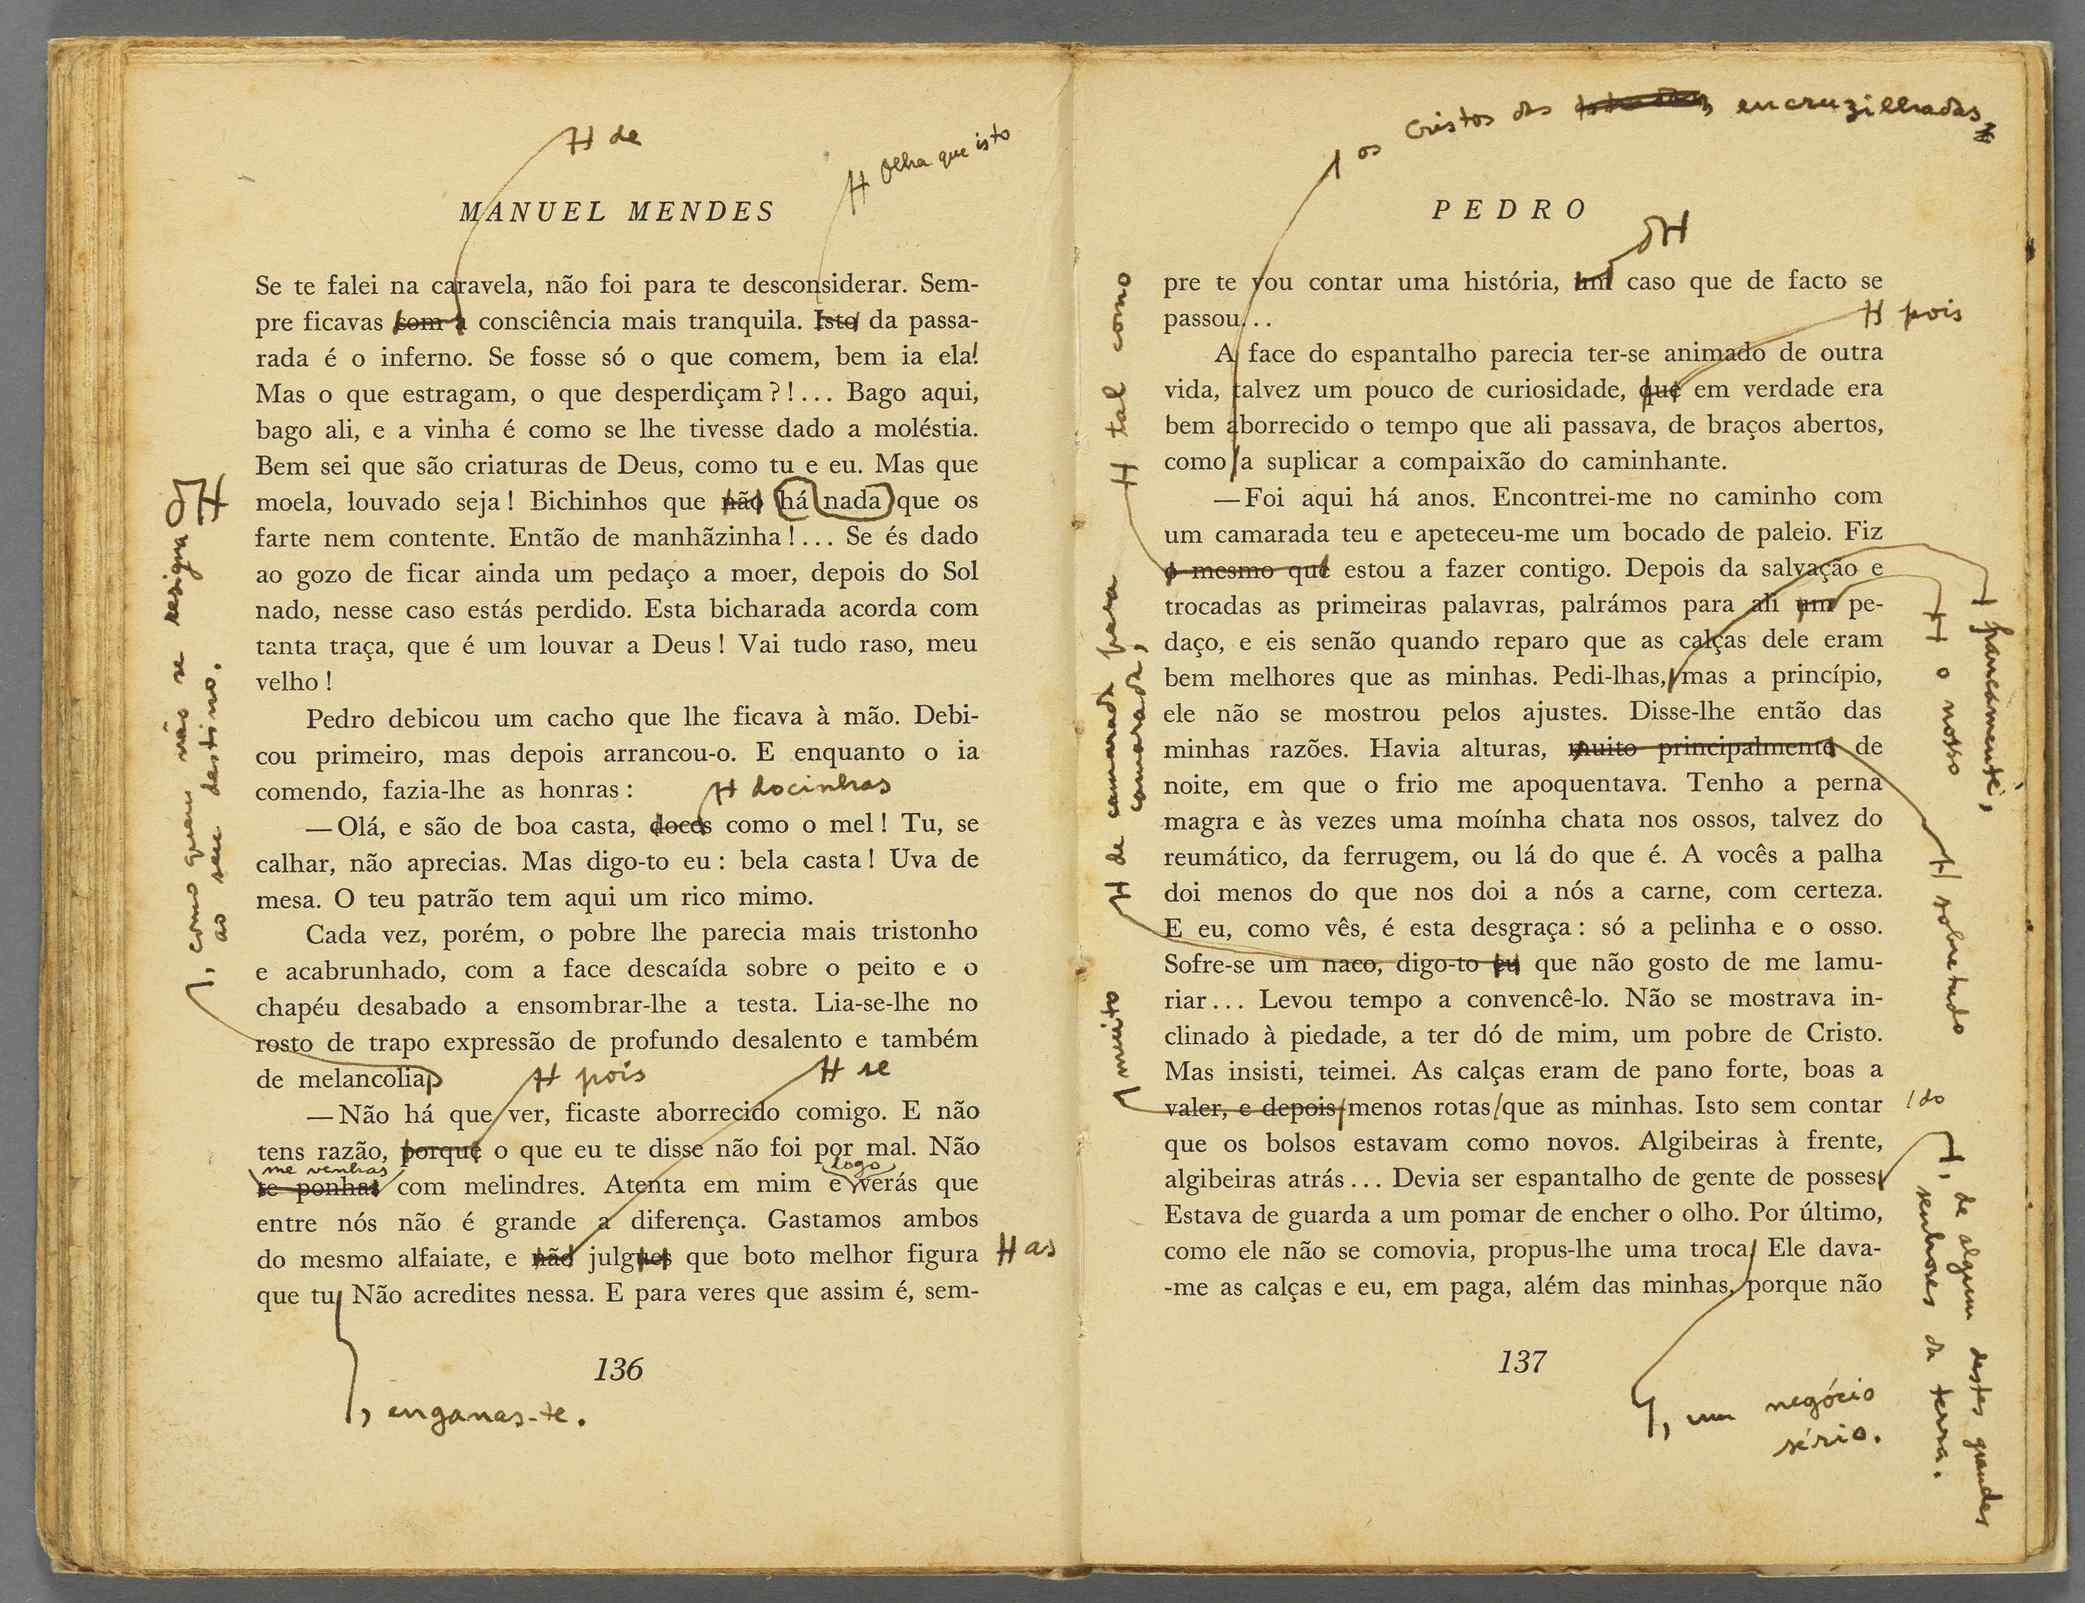 H de
H Olha que isto
MANUEL MENDES
Se te falei na caravela, não foi para te desconsiderar. Sem-
pre ficavas com a consciência mais tranquila. Isto da passa-
rada é o inferno. Se fosse só o que comem, bem ia ela!
Mas o que estragam, o que desperdiçam?!... Bago aqui,
bago ali, e a vinha é como se lhe tivesse dado a moléstia.
Bem sei que são criaturas de Deus, como tu e eu. Mas que
moela, louvado seja! Bichinhos que não há nada que os
farte nem contente. Então de manhãzinha!... Se és dado
ao gozo de ficar ainda um pedaço a moer, depois do Sol
nado, nesse caso estás perdido. Esta bicharada acorda com
tanta traça, que é um louvar a Deus! Vai tudo raso, meu
velho!
Pedro debicou um cacho que lhe ficava à mão. Debi-
cou primeiro, mas depois arrancou-o. E enquanto o ia
comendo, fazia-lhe as honras:
H docinhas
—Olá, e são de boa casta, doces como o mel! Tu, se
calhar, não aprecias. Mas digo-to eu: bela casta! Uva de
mesa. O teu patrão tem aqui um rico mimo.
Cada vez, porém, o pobre lhe parecia mais tristonho
e acabrunhado, com a face descaída sobre o peito e o
chapéu desabado a ensombrar-lhe a testa. Lia-se-lhe no
rosto de trapo expressão de profundo desalento e também
de melancolia
, como quem não se resigna
ao seu destino.
H pois
H se
—Não há que ver, ficaste aborrecido comigo. E não
tens razão, porque o que eu te disse não foi por mal. Não
me venhas
logo
te ponhas com melindres. Atenta em mim e verás que
entre nós não é grande a diferença. Gastamos ambos
do mesmo alfaiate, e não julgues que boto melhor figura
H as
que tu Não acredites nessa. E para veres que assim é, sem-
136
, enganas-te.
os Cristos das encruzilhadas,
PEDRO
pre te vou contar uma história, um caso que de facto se
passou...
H pois
A face do espantalho parecia ter-se animado de outra
vida, talvez um pouco de curiosidade, que em verdade era
bem aborrecido o tempo que ali passava, de braços abertos,
como a suplicar a compaixão do caminhante.
—Foi aqui há anos. Encontrei-me no caminho com
um camarada teu e apeteceu-me um bocado de paleio. Fiz
H tal como
o mesmo que estou a fazer contigo. Depois da salvação e
trocadas as primeiras palavras, palrámos para ali um pe-
H o nosso
daço, e eis senão quando reparo que as calças dele eram
bem melhores que as minhas. Pedi-lhas, mas a princípio,
francamente,
ele não se mostrou pelos ajustes. Disse-lhe então das
minhas razões. Havia alturas, muito principalmente de
H sobretudo
noite, em que o frio me apoquentava. Tenho a perna
magra e às vezes uma moínha chata nos ossos, talvez do
reumático, da ferrugem, ou lá do que é. A vocês a palha
doi menos do que nos doi a nós a carne, com certeza.
E eu, como vês, é esta desgraça: só a pelinha e o osso.
Sofre-se um naco, digo-to eu que não gosto de me lamu-
H de camarada para
camarada,
riar... Levou tempo a convencê-lo. Não se mostrava in-
clinado à piedade, a ter dó de mim, um pobre de Cristo.
Mas insisti, teimei. As calças eram de pano forte, boas a
valer, e depois menos rotas que as minhas. Isto sem contar
muito
/ do
que os bolsos estavam como novos. Algibeiras à frente,
algibeiras atrás... Devia ser espantalho de gente de posses
, de algum destes grandes
senhores da terra.
Estava de guarda a um pomar de encher o olho. Por último,
como ele não se comovia, propus-lhe uma troca Ele dava-
-me as calças e eu, em paga, além das minhas, porque não
137
, um negócio
sério.